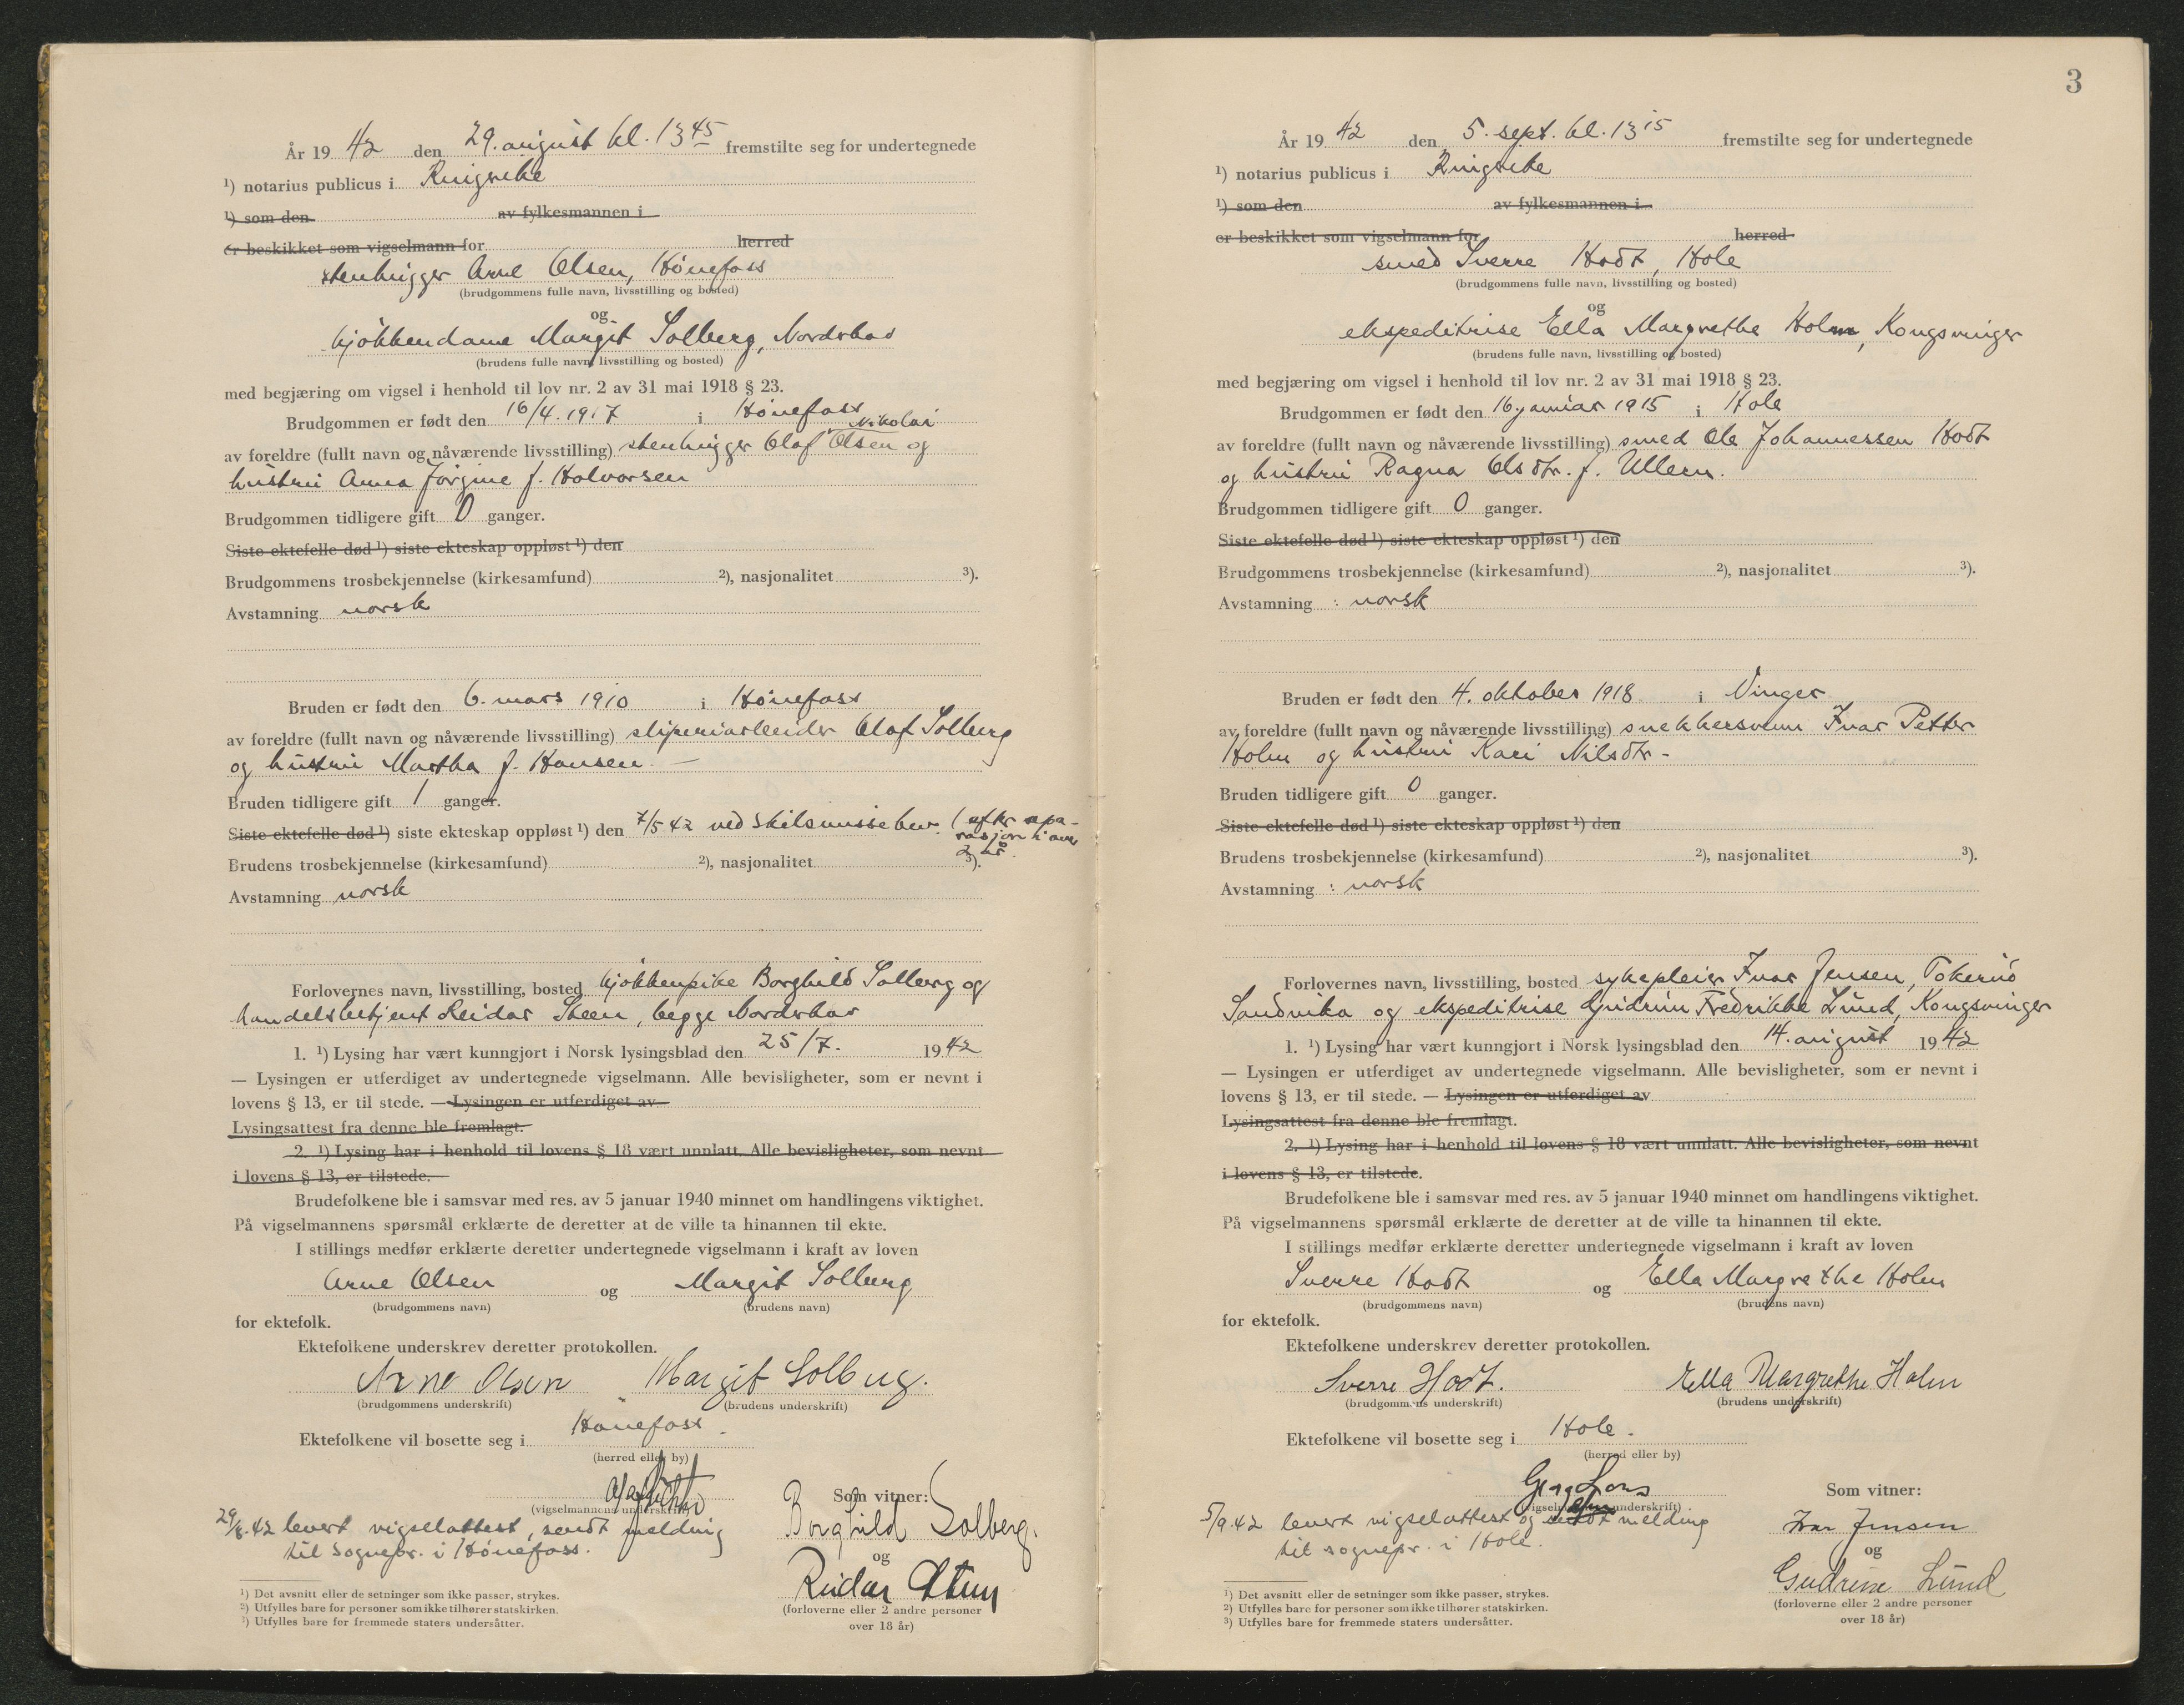 År 19 42 den 29. august kl. 13 45 fremstilte seg for undertegnede
¹) notarius publicus i Ringerike
¹) som den av fylkesmannen i
er beskikket som vigselmann for herred
stenhugger Arne Olsen, Hønefoss
(brudgommens fulle navn, livsstilling og bosted)
og
kjøkkendame Margit Solberg, Norderhov
(brudens fulle navn, livsstilling og bosted)
med begjæring om vigsel i henhold til lov nr. 2 av 31 mai 1918 § 23.
Brudgommen er født den 16/4. 1917 i Hønefoss
Nikolai
av foreldre (fullt navn og nåværende livsstilling) stenhugger Olaf Olsen og
hustru Anna Jørgine f. Halvorsen
Brudgommen tidligere gift 0 ganger.
Siste ektefelle død ¹) siste ekteskap oppløst ¹) den
Brudgommens trosbekjennelse (kirkesamfund) ²), nasjonalitet ³).
Avstamning norsk
Bruden er født den 6. mars 1910 i Hønefoss
av foreldre (fullt navn og nåværende livsstilling) sliperiarbeider Olaf Solberg
og hustru Martha f. Hansen. —
Bruden tidligere gift 1 ganger.
Siste ektefelle død ¹) siste ekteskap oppløst ¹) den 7/5 42 ved skilsmissebev. (efter sepa-
rasjon i over
2 år.
Brudens trosbekjennelse (kirkesamfund) ²), nasjonalitet ³).
Avstamning norsk
Forlovernes navn, livsstilling, bosted kjøkkenpike Borghild Solberg og
handelsbetjent Reidar Steen, begge Norderhov
1. ¹) Lysing har vært kunngjort i Norsk lysingsblad den 25/7. 19 42
— Lysingen er utferdiget av undertegnede vigselmann. Alle bevisligheter, som er nevnt i
lovens § 13, er til stede. — Lysingen er utferdiget av
Lysingsattest fra denne ble fremlagt.
2. ¹) Lysing har i henhold til lovens § 18 vært unnlatt. Alle bevisligheter, som nevnt
i lovens § 13, er tilstede.
Brudefolkene ble i samsvar med res. av 5 januar 1940 minnet om handlingens viktighet.
På vigselmannens spørsmål erklærte de deretter at de ville ta hinannen til ekte.
I stillings medfør erklærte deretter undertegnede vigselmann i kraft av loven
Arne Olsen og Margit Solberg
(brudgommens navn) (brudens navn)
for ektefolk.
Ektefolkene underskrev deretter protokollen.
Arne Olsen Margit Solberg.
(brudgommens underskrift) (brudens underskrift)
Ektefolkene vil bosette seg i Hønefoss.
(herred eller by)
Som vitner:
(vigselmannens underskrift)
29/8.42 levert vigselattest, sendt melding
til sognepr. i Hønefoss.
Borghild Solberg.
og
Reidar Steen
(forloverne eller 2 andre personer
over 18 år)
¹) Det avsnitt eller de setninger som ikke passer, strykes.
²) Utfylles bare for personer som ikke tilhører statskirken.
³) Utfylles bare for fremmede staters undersåtter.
3
År 19 42 den 5. sept. kl. 13 15 fremstilte seg for undertegnede
¹) notarius publicus i Ringerike
¹) som den av fylkesmannen i
er beskikket som vigselmann for herred
smed Sverre Hodt, Hole
(brudgommens fulle navn, livsstilling og bosted)
og
ekspeditrise Ella Margrethe Holm, Kongsvinger
(brudens fulle navn, livsstilling og bosted)
med begjæring om vigsel i henhold til lov nr. 2 av 31 mai 1918 § 23.
Brudgommen er født den 16 januar 1915 i Hole
av foreldre (fullt navn og nåværende livsstilling) smed Ole Johannessen Hodt
og hustru Ragna Olsdtr. f. Ullern.
Brudgommen tidligere gift 0 ganger.
Siste ektefelle død ¹) siste ekteskap oppløst ¹) den
Brudgommens trosbekjennelse (kirkesamfund) ²), nasjonalitet ³).
Avstamning : norsk
Bruden er født den 4. oktober 1918 i Vinger
av foreldre (fullt navn og nåværende livsstilling) snekkersvenn Ivar Petter
Holm og hustru Kari Nilsdtr -
Bruden tidligere gift 0 ganger.
Siste ektefelle død ¹) siste ekteskap oppløst ¹) den
Brudens trosbekjennelse (kirkesamfund) ²), nasjonalitet ³).
Avstamning : norsk
Forlovernes navn, livsstilling, bosted sykepleier Ivar Jensen,
Sandvika og ekspeditrise Gudrun Fredrikke Lund, Kongsvinger
1. ¹) Lysing har vært kunngjort i Norsk lysingsblad den 14. august 19 42
— Lysingen er utferdiget av undertegnede vigselmann. Alle bevisligheter, som er nevnt i
lovens § 13, er til stede. — Lysingen er utferdiget av
Lysingsattest fra denne ble fremlagt.
2. ¹) Lysing har i henhold til lovens § 18 vært unnlatt. Alle bevisligheter, som nevnt
i lovens § 13, er tilstede.
Brudefolkene ble i samsvar med res. av 5 januar 1940 minnet om handlingens viktighet.
På vigselmannens spørsmål erklærte de deretter at de ville ta hinannen til ekte.
I stillings medfør erklærte deretter undertegnede vigselmann i kraft av loven
Sverre Hodt og Ella Margrethe Holm
(brudgommens navn) (brudens navn)
for ektefolk.
Ektefolkene underskrev deretter protokollen.
Sverre Hodt. Ella Margrethe Holm
(brudgommens underskrift) (brudens underskrift)
Ektefolkene vil bosette seg i Hole.
(herred eller by)
Som vitner:
(vigselmannens underskrift)
5/9.42 levert vigselattest og sendt melding
til sognepr. i Hole.
Ivar Jensen
og
Gudrun Lund
(forloverne eller 2 andre personer
over 18 år)
¹) Det avsnitt eller de setninger som ikke passer, strykes.
²) Utfylles bare for personer som ikke tilhører statskirken.
³) Utfylles bare for fremmede staters undersåtter.